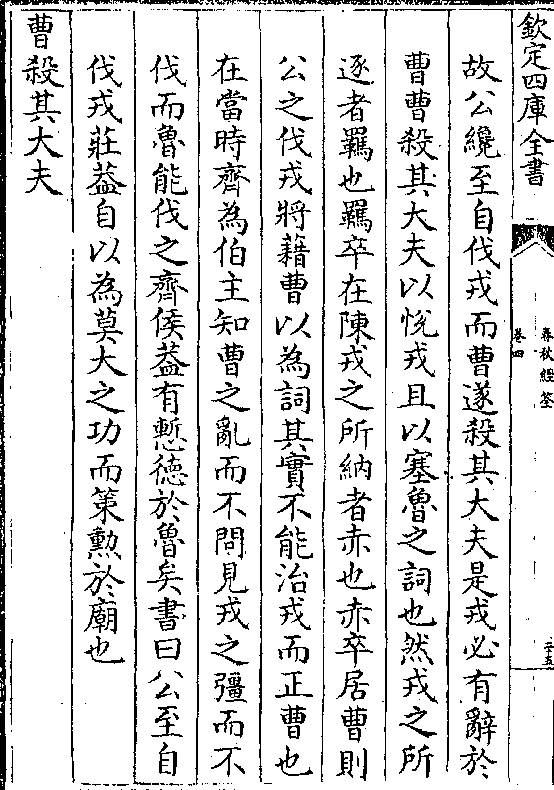 欽定四庫全書
春秋經筌
卷四
二十五
故公纔至自伐戎而曹遂殺其大夫是戎必有辭於
曹曹殺其大夫以悅戎且以塞魯之詞也然戎之所
逐者羈也羈卒在陳戎之所納者赤也赤卒居曹則
公之伐戎將藉曹以為詞其實不能治戎而正曹也
在當時齊為伯主知曹之亂而不問見戎之彊而不
伐而魯能伐之齊侯葢有慙德於魯矣書曰公至自
伐戎莊葢自以為莫大之功而策勲於廟也
曹殺其大夫